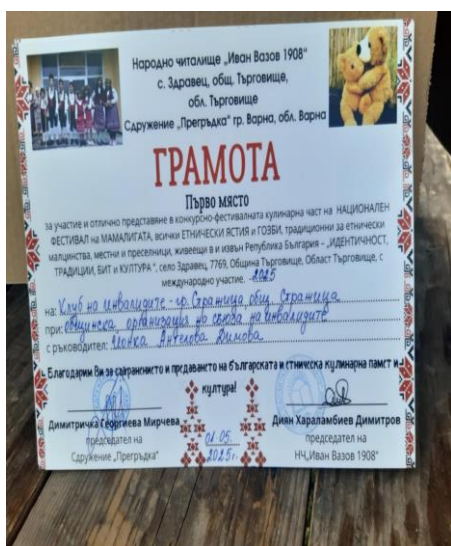 Народно читалище „Иван Вазов 1908"
с. Здравец, общ. Търговище,
обл. Търговище
Сдружение „Прегръдка" гр. Варна, обл. Варна
ГРАМОТА
Първо място
за участие и отлично представяне в конкурсно-фестивалната кулинарна част на НАЦИОНАЛЕН
ФЕСТИВАЛ на МАМАЛИГАТА, всички ЕТНИЧЕСКИ ЯСТИЯ и ГОЗБИ, традиционни за етнически
малцинства, местни и преселници, живеещи в и извън Република България – „ИДЕНТИЧНОСТ,
ТРАДИЦИИ, БИТ и КУЛТУРА", село Здравец, 7769, Община Търговище, Област Търговище, с
международно участие. 2025
на: Клуб на инвалидите - гр. Стражица общ. Стражица
при: общинска организация на съюза на инвалидите
с ръководител: Йонка Ангелова Димова
Благодарим Ви за съхранението и предаването на българската и етническа кулинарна памет и
култура!
Димитричка Георгиева Мирчева
председател на
Сдружение „Прегръдка"
01.05.
2025г.
Диян Хараламбиев Димитров
председател на
НЧ„Иван Вазов 1908"